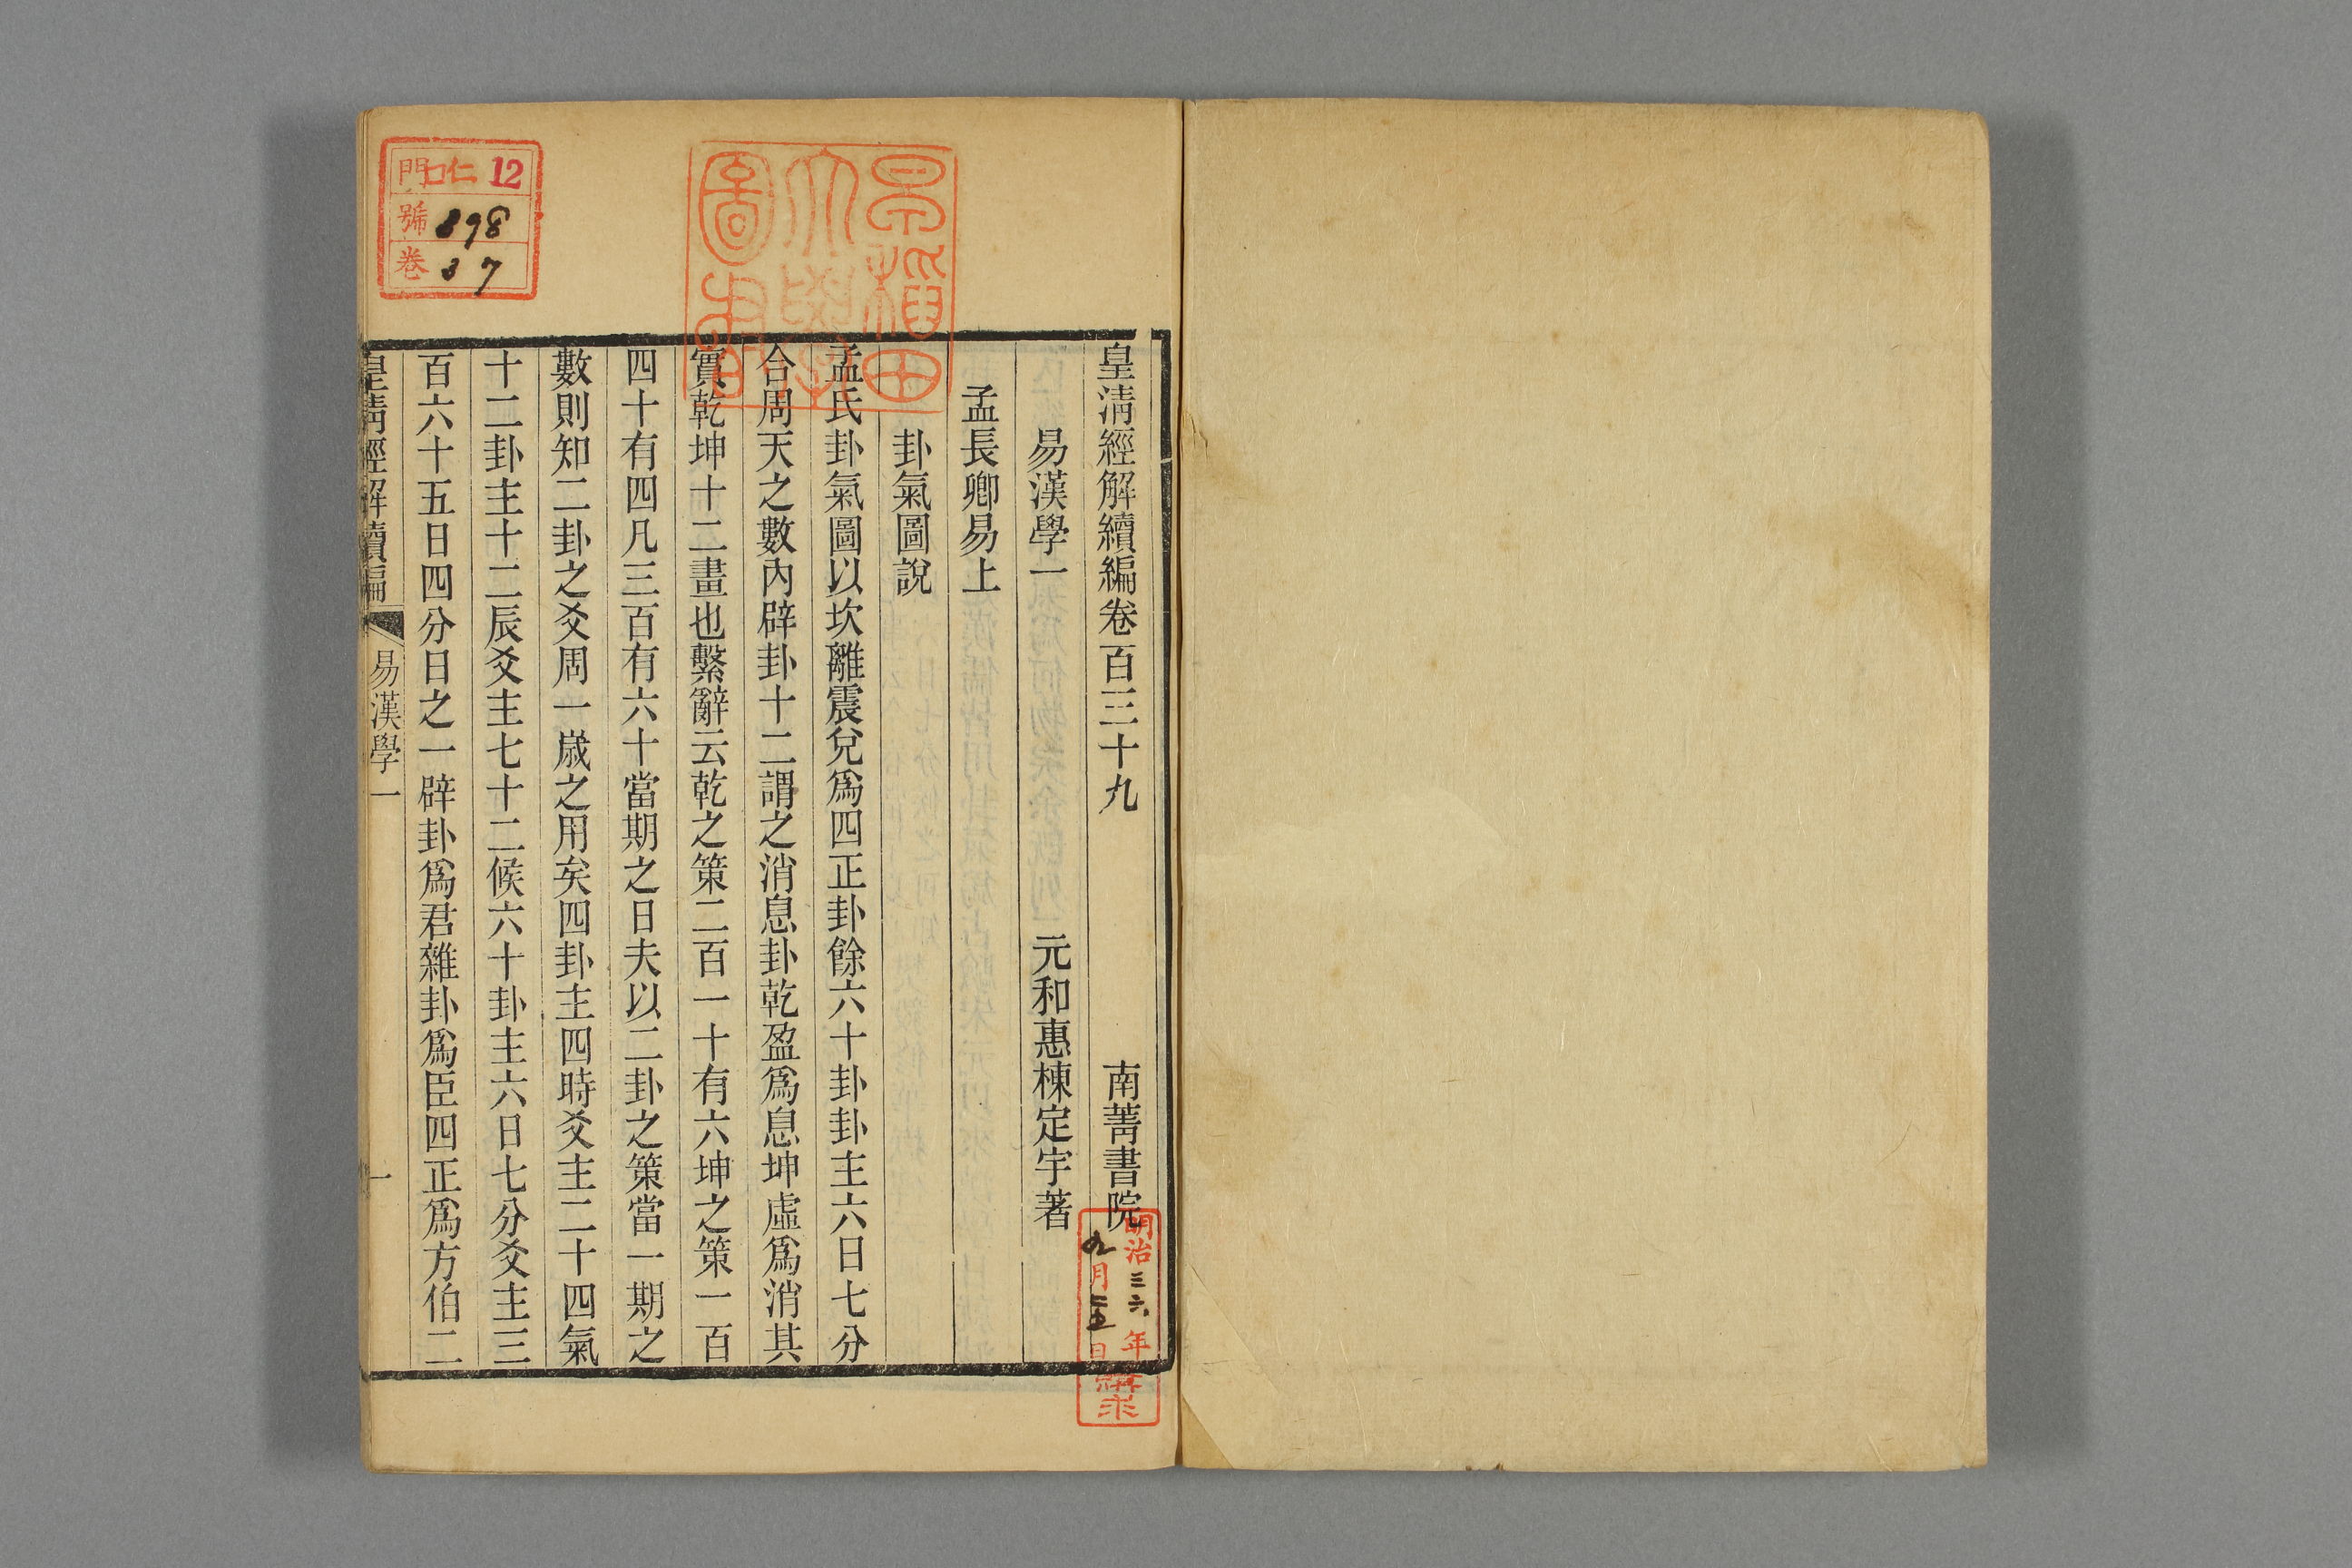 皇淸經解續編卷百三十九
南菁書院
易漢學一
元和惠棟定宇著
孟長卿易上
卦氣圖說
孟氏卦氣圖以坎離震兌爲四正卦餘六十卦卦主六日七分
合周天之數內辟卦十二謂之消息卦乾盈爲息坤虛爲消其
實乾坤十二畫也繫辭云乾之策二百一十有六坤之策一百
四十有四凡三百有六十當期之日夫以二卦之策當一期之
數則知二卦之爻周一歲之用矣四卦主四時爻主二十四氣
十二卦主十二辰爻主七十二候六十卦主六日七分爻主三
百六十五日四分日之一辟卦爲君雜卦爲臣四正爲方伯二
皇淸經解續編
易漢學一
一
早稲田
大學
圖書
門 仁 12
號 898
卷 37
明治三六年
九月
日購求